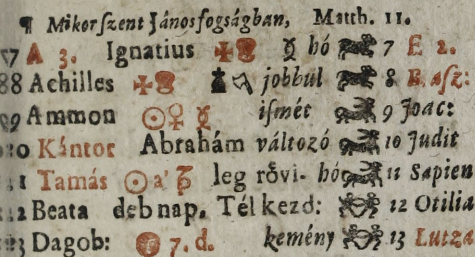 ¶ Mikor szent János fogságban, Matth. 11.
7 A 3. Ignatius hó 7 E 2.
8 Achilles jobbul 8 B. asz:
9 Ammon ☉♀☿ ismét 9 Joac:
10 Kántor Abrahám változó 10 Judit
11 Tamás ☉ a' leg rövi- hó 11 Sapien
12 Beata deb nap. Tél kezd: 12 Otilia
13 Dagob: 7. d. kemény 13 Lutza